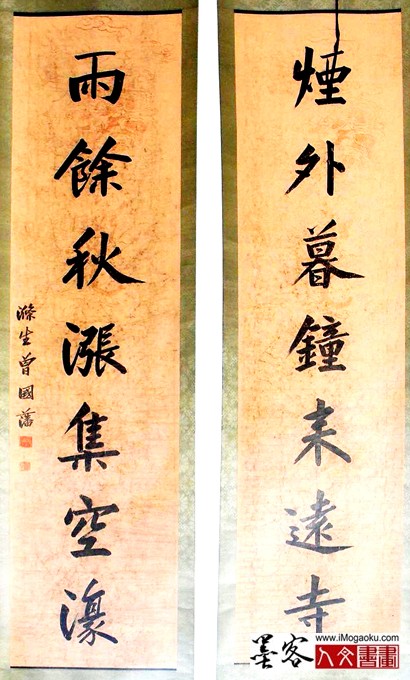 煙外暮鐘来遠寺
雨餘秋漲集空濠
滌生曾國藩
www.iMogaoku.com
墨客
人文書畫